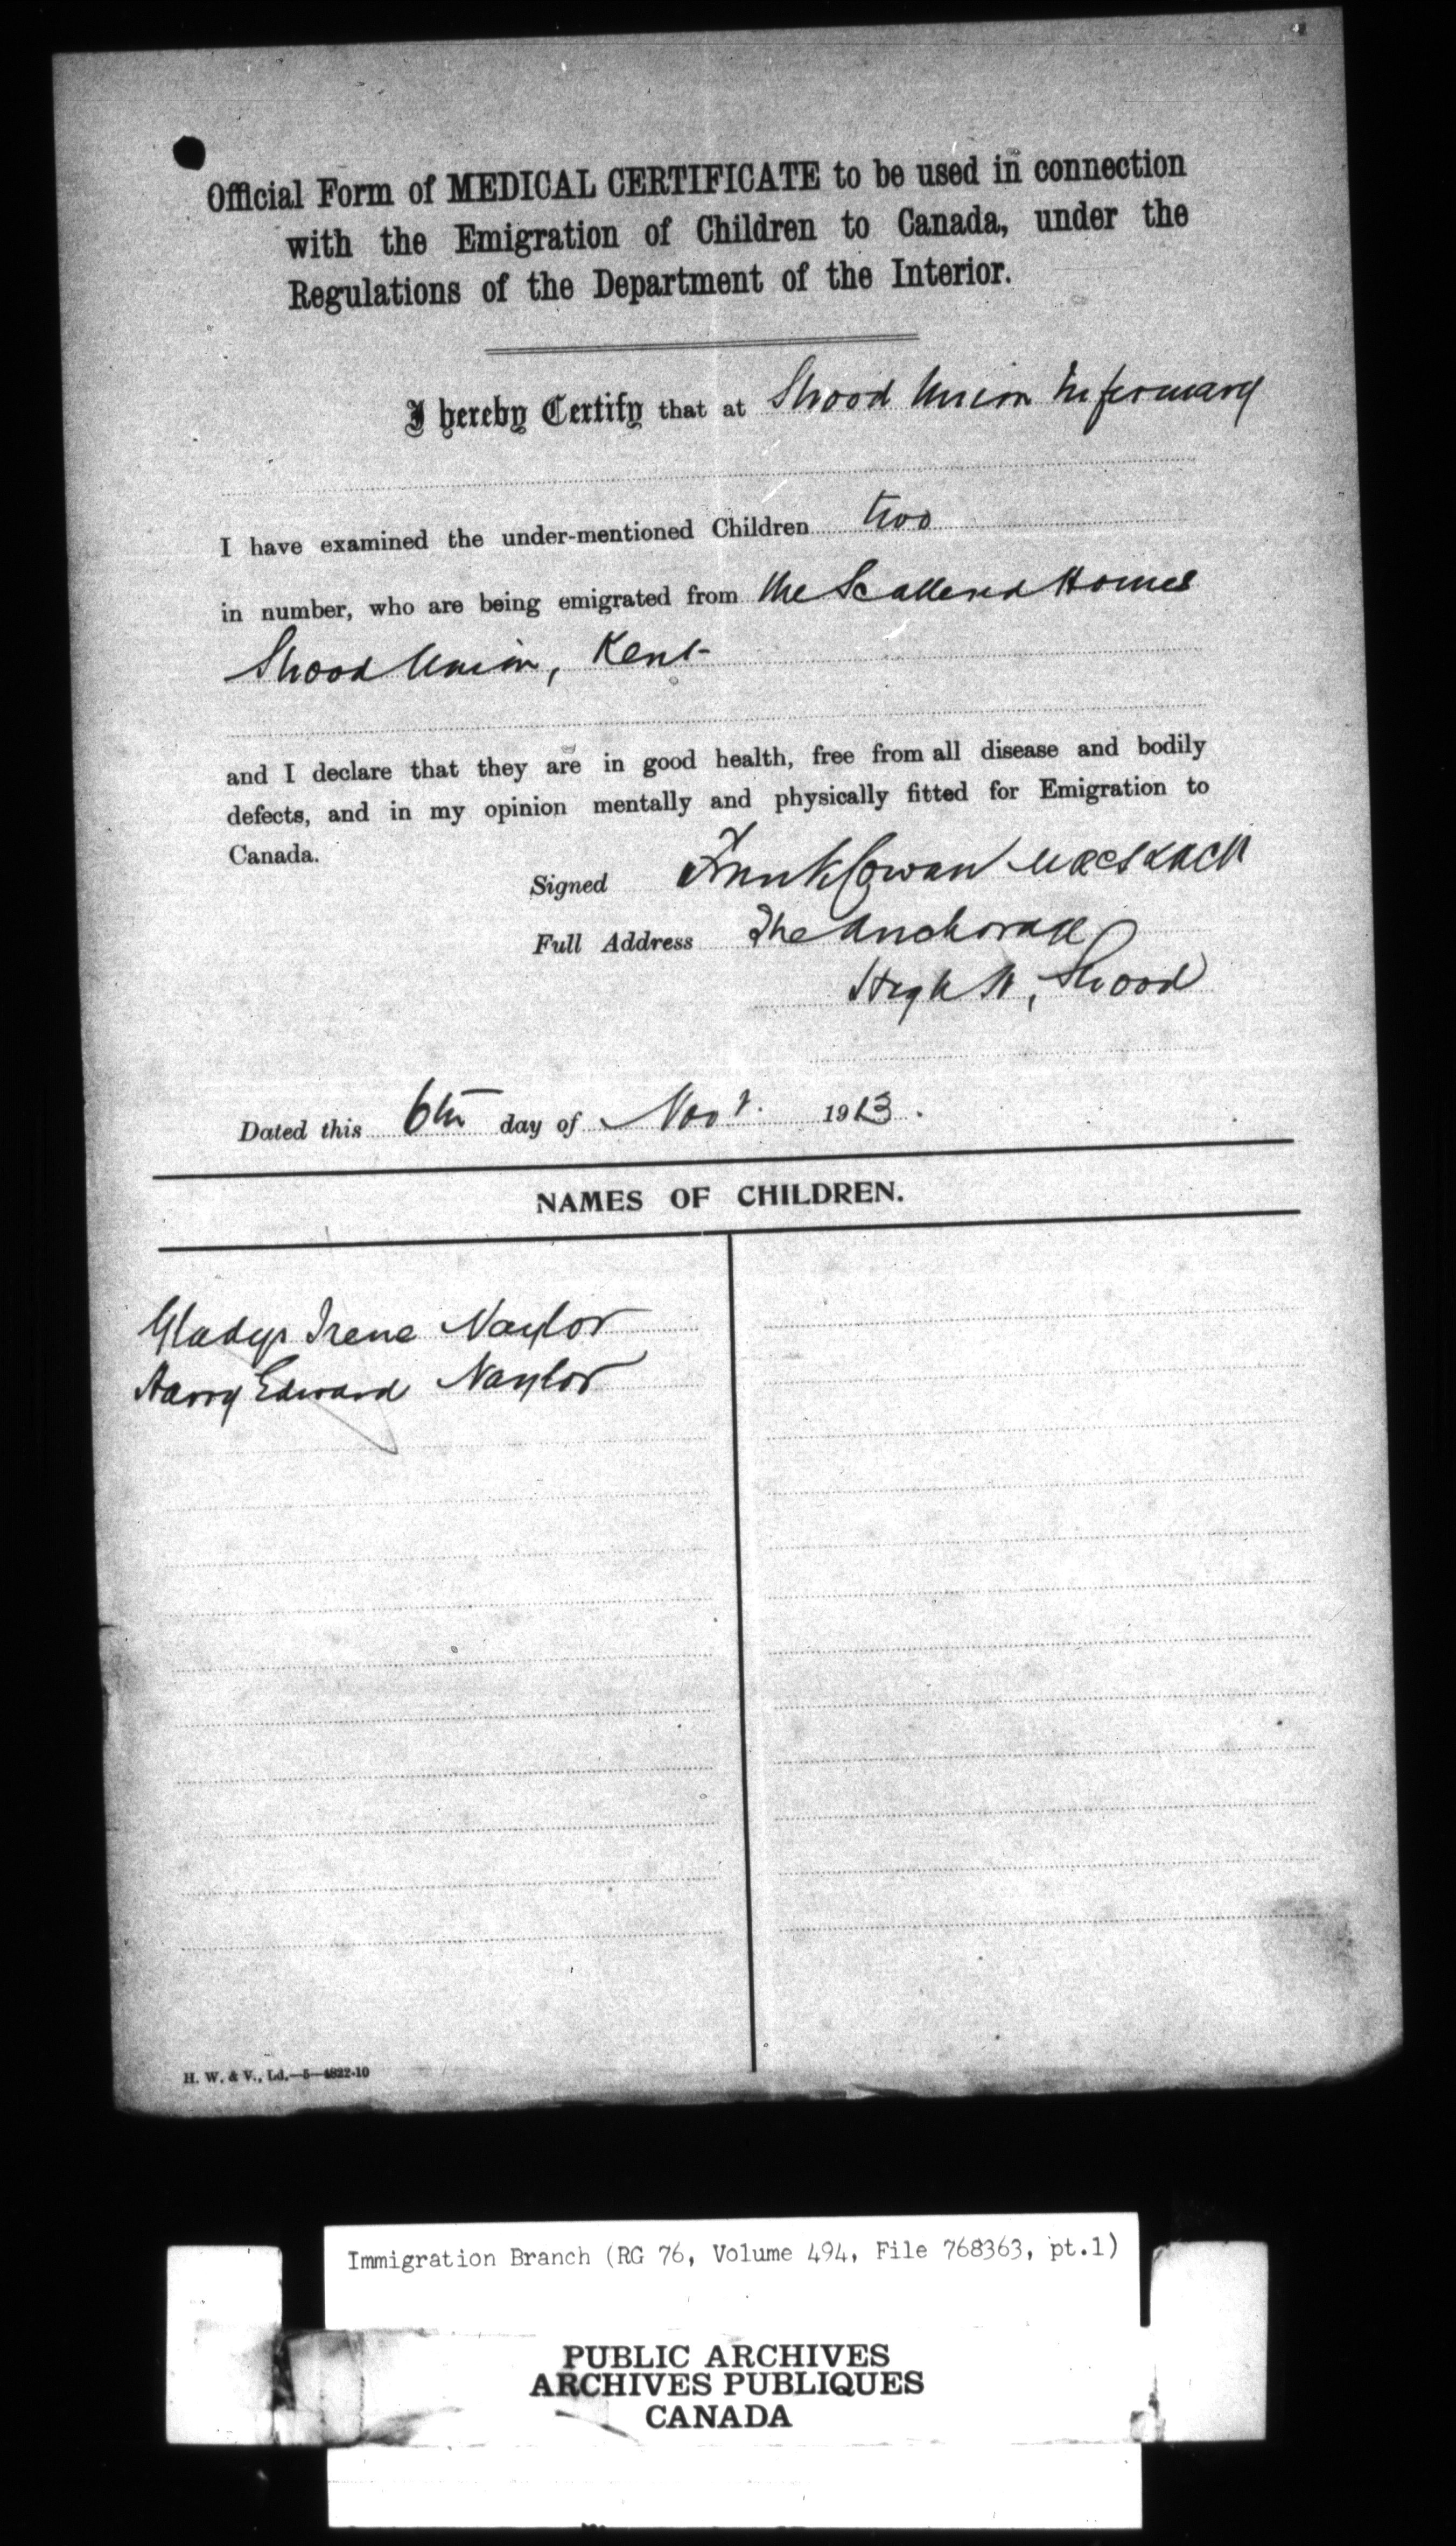 Official Form of MEDICAL CERTIFICATE to be used in connection
with the Emigration of Children to Canada, under the
Regulations of the Department of the Interior.
I hereby Certify that at Strood Union Infirmary
I have examined the under-mentioned Children two
in number, who are being emigrated from the Scattered Homes
Strood Union, Kent
and I declare that they are in good health, free from all disease and bodily
defects, and in my opinion mentally and physically fitted for Emigration to
Canada.
Signed Frank Cowan MRCS LRCP
Full Address The Anchorage
High St, Strood
Dated this 6th day of Novr. 1913.
NAMES OF CHILDREN.
Gladys Irene Naylor
Harry Edward Naylor
H. W. & V., Ld.—5—4822-10
Immigration Branch (RG 76, Volume 494, File 768363, pt.1)
PUBLIC ARCHIVES
ARCHIVES PUBLIQUES
CANADA